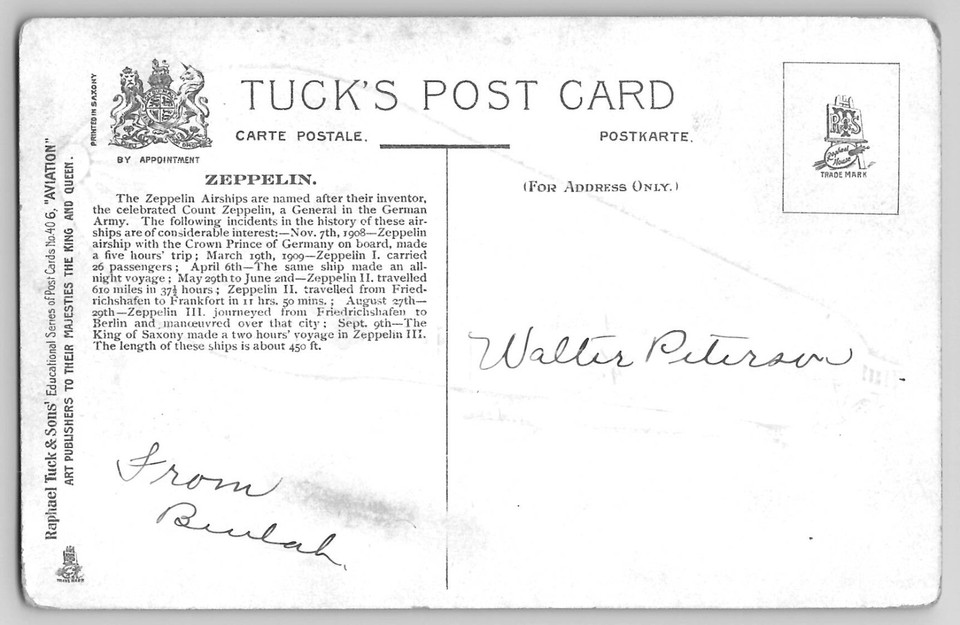 TUCK'S POST CARD
CARTE POSTALE.
POSTKARTE.
PRINTED IN SAXONY
BY APPOINTMENT
(FOR ADDRESS ONLY.)
TRADE MARK
ZEPPELIN.
The Zeppelin Airships are named after their inventor,
the celebrated Count Zeppelin, a General in the German
Army. The following incidents in the history of these air-
ships are of considerable interest:—Nov. 7th, 1908—Zeppelin
airship with the Crown Prince of Germany on board, made
a five hours' trip; March 19th, 1909—Zeppelin I. carried
26 passengers; April 6th—The same ship made an all-
night voyage; May 29th to June 2nd—Zeppelin II. travelled
610 miles in 37½ hours; Zeppelin II. travelled from Fried-
richshafen to Frankfort in 11 hrs. 50 mins.; August 27th—
29th—Zeppelin III. journeyed from Friedrichshafen to
Berlin and manœuvred over that city; Sept. 9th—The
King of Saxony made a two hours' voyage in Zeppelin III.
The length of these ships is about 450 ft.
Raphael Tuck & Sons' Educational Series of Post Cards No. 406, "AVIATION"
ART PUBLISHERS TO THEIR MAJESTIES THE KING AND QUEEN.
Walter Peterson
From
Beulah.
TRADE MARK